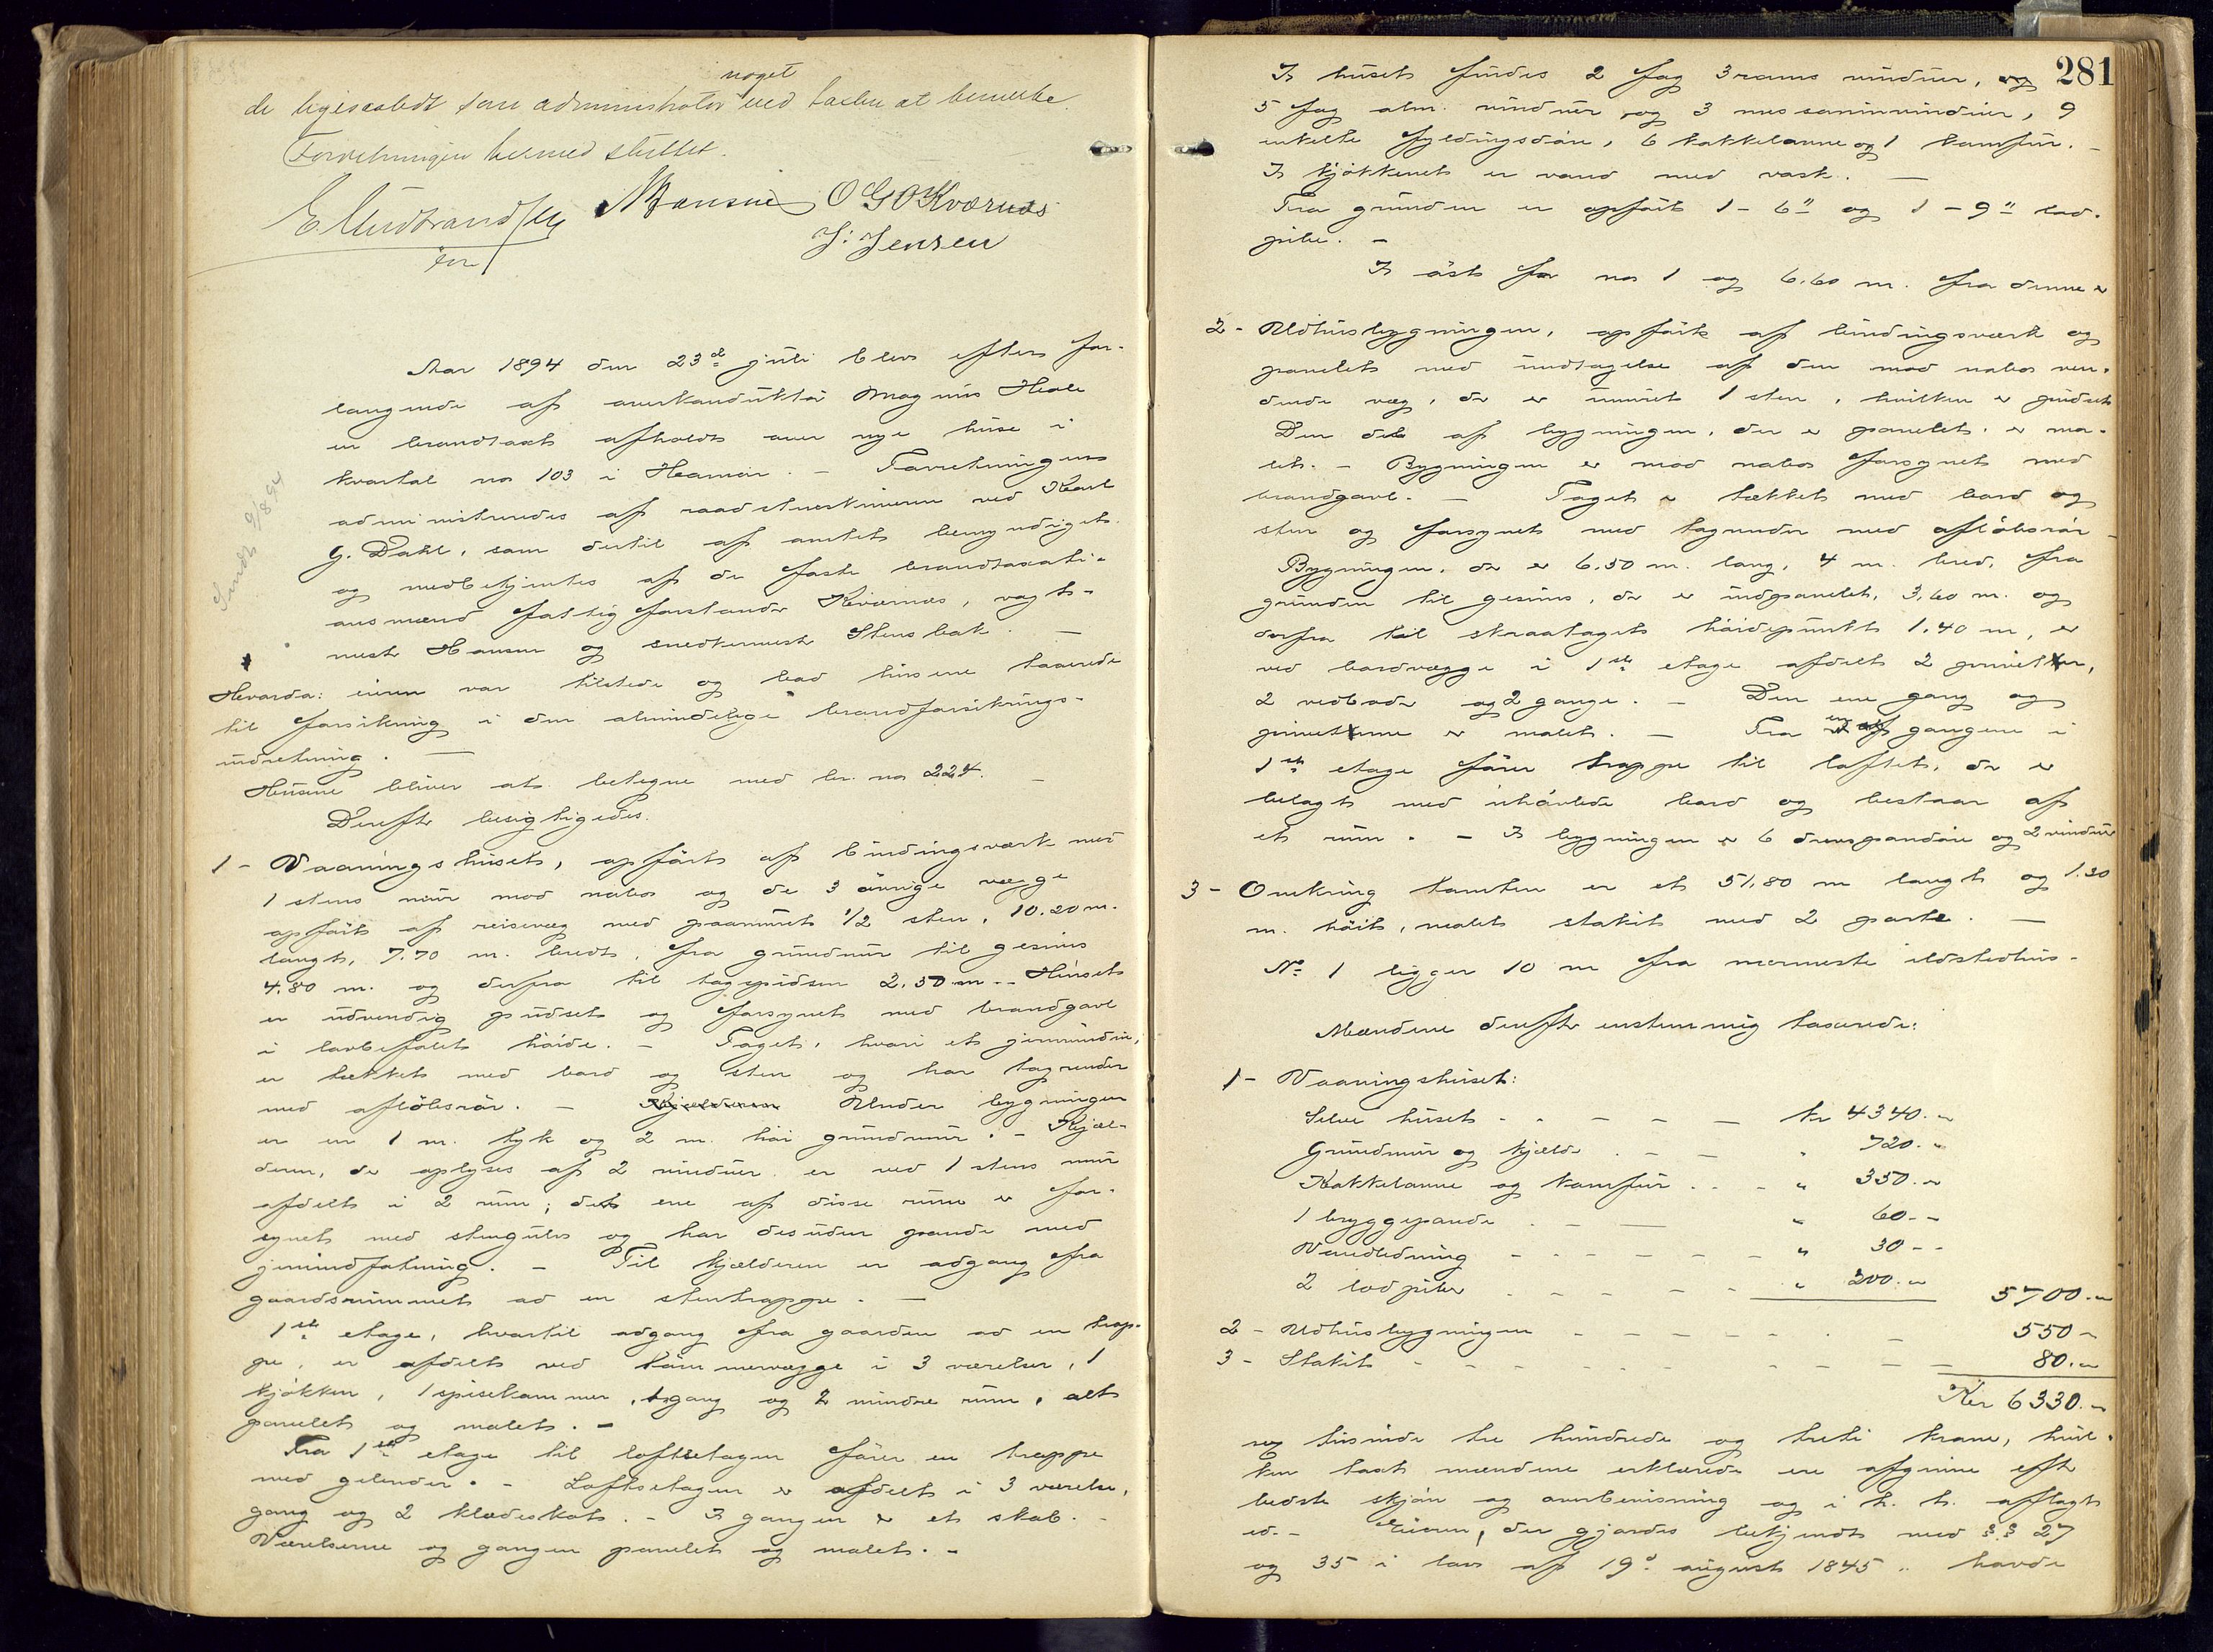 noget
de ligesaalidt som administrator ved taxten at bemerke.
Forretningen hermed sluttet.
O G O Kværnæs
J. Jensen
Aar 1894 den 23de juli blev efter for-
langende af overkonduktör Magnus Hoole
en brandtaxt afholdt over nye huse i
kvartal no 103 i Hamar. - Forretningen
administreredes af raadstueskriveren ved Karl
G. Dahl, som dertil af amtet bemyndiget
og medbetjentes af de faste brandtaxati-
onsmænd fattigforstander Kværnæs, vagt-
mester Hansen og snedkermester Stensbak. -
Sendt 9/8 94
Hvorda: eieren var tilstede og bad husene taxerede
til forsikring i den almindelige brandforsikrings-
indretning. -
Husene bliver at betegne med br. no 224. -
Derefter besigtigedes.
1 - Vaaningshuset, opfört af bindingsværk med
1 stens mur mod nabo og de 3 övrige vægge
opfört af reisvæg med paamuret 1/2 sten, 10.20 m.
langt, 7.70 m. bredt, fra grundmur til gesims
4.80 m. og derfra til tagspidsen 2.50 m. - Huset
er udvendig pudset og forsynet med brandgavl
i lovbefalet höide. - Taget, hvori et jernvindu,
er tækket med bord og sten og har tagrender
med aflöbsrör. - Kjælderen Under bygningen
er en 1 m. tyk og 2 m. höi grundmur. - Kjæl-
deren, der oplyses af 2 vinduer er ved 1 stens mur
afdelt i 2 rum; det ene af disse rum er for-
synet med stengulv og har desuden pande med
jernindfatning. - Til kjælderen er adgang fra
gaardsrummet ad en stentrappe. -
1ste etage, hvortil adgang fra gaarden ad en trap-
pe, er afdelt ved tömmervægge i 3 værelser, 1
kjökken, 1 spisekammer, 1 gang og 2 mindre rum, alt
panelet og malet. -
Fra 1ste etage til loftsetagen förer en trappe
med gelender. - Loftsetagen er afdelt i 3 værelser,
gang og 2 klædeskot. - I gangen er et skab. -
Værelserne og gangen panelet og malet. -
281
I huset findes 2 fag 3rams vinduer, og
5 fag alm. vinduer og 3 messaninvinduer, 9
enkelte fyldingsdöre, 6 kakkelovne og 1 komfur. -
I kjökkenet er vand med vask. -
Fra grunden er opfört 1 - 6" og 1 - 9" lod-
pibe. -
I öst for no 1 og 6.60 m. fra denne er
2 - Udhusbygningen, opfört af bindingsværk og
panelet med undtagelse af den mod nabo ven-
dende væg, der er muret 1 sten, hvilken er pudset
Den del af bygningen, der er panelet, er ma-
let. - Bygningen er mod nabo forsynet med
brandgavl. - Taget er tækket med bord og
sten og forsynet med tagrender med aflöbsrör -
Bygningen, der er 6.50 m. lang, 4 m. bred, fra
grunden til gesims, der er indpanelet, 3.60 m. og
derfra til skraatagets höidepunkt 1.40 m, er
ved bordvægge i 1ste etage afdelt 2 priveter,
2 vedboder og 2 gange. - Den ene gang og
priveterne er malet. - Fra en af gangene i
1ste etage förer trappe til loftet, der er
belagt med uhövlede bord og bestaar af
et rum. - I bygningen er 6 döre og 2 vinduer
3 - Omkring tomten er et 51.80 m langt og 1.30
m. höit, malet stakit med 2 porte. -
No 1 ligger 10 m fra nærmeste ildstedhus -
Mændene derefter enstemmig taxerede:
1 - Vaaningshuset:
Selve huset - - - - - kr 4340.-
Grundmur og kjelder - - - " 720.-
Kakkelovne og komfur - - - " 350.-
1 bryggepande - - - " 60.-
Vandledning - - - - - " 30.-
2 lodpiber - - - - - " 200.- 5700.-
2 - Udhusbygningen - - - - - - - 550.-
3 - Stakit - - - - - - - - - 80.-
Kr 6330.-
sex tusinde tre hundrede og treti kroner, hvil-
ken taxt mændene erklærede ere afgivne efter
bedste skjön og overbevisning og i h. t. aflagt
ed. - Eieren, der gjordes bekjendt med §§ 27
og 35 i lov af 19de august 1845 " havde